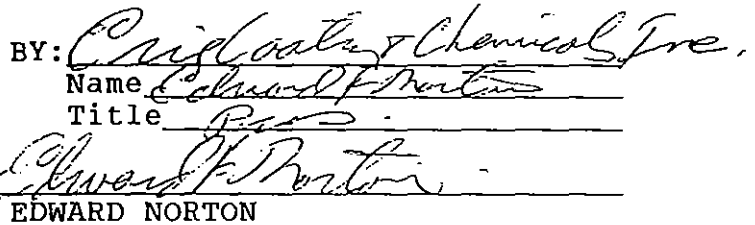 BY: Coatings & Chemicals, Inc.
Name Edward F Norton
Title Pres.
Edward F. Norton
EDWARD NORTON